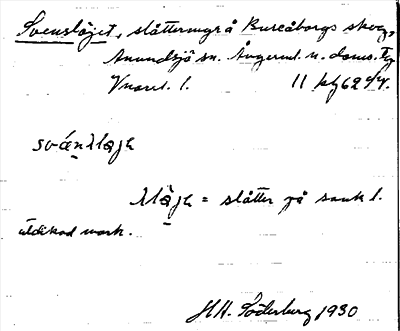 Svenslöjet, slåttermyr å Bureåborgs skog,
Anundsjö sn. Ångerml. n. doms. Tg
Vnorrl. l. 11 kbl 62
svänslåjh
slåjh = slåtter på sank l.
utdikad mark.
H.H. Söderberg 1930